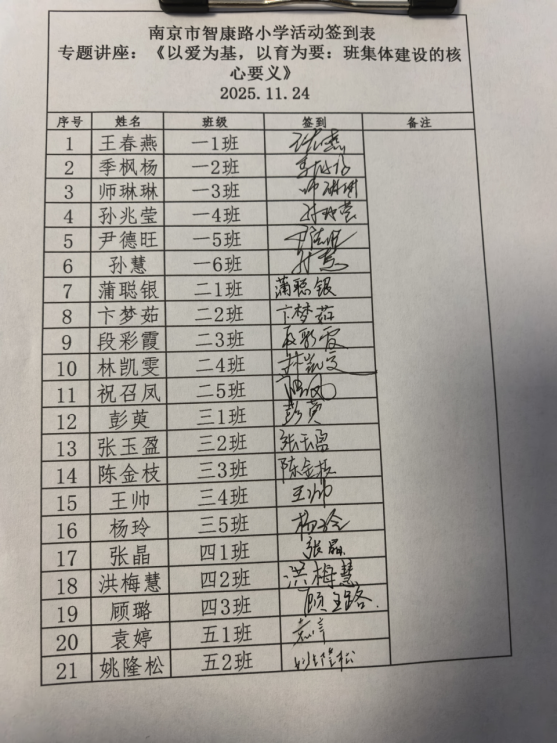 南京市智康路小学活动签到表
专题讲座：《以爱为基，以育为要：班集体建设的核
心要义》
2025.11.24
序号 姓名 班级 签到 备注
1 王春燕 一1班
2 季枫杨 一2班
3 师琳琳 一3班 师琳琳
4 孙兆莹 一4班 孙兆莹
5 尹德旺 一5班
6 孙慧 一6班 孙慧
7 蒲聪银 二1班 蒲聪银
8 卞梦茹 二2班 卞梦茹
9 段彩霞 二3班 段彩霞
10 林凯雯 二4班 林凯雯
11 祝召凤 二5班
12 彭萸 三1班 彭萸
13 张玉盈 三2班 张玉盈
14 陈金枝 三3班 陈金枝
15 王帅 三4班 王帅
16 杨玲 三5班 杨玲
17 张晶 四1班 张晶
18 洪梅慧 四2班 洪梅慧
19 顾璐 四3班 顾璐
20 袁婷 五1班
21 姚隆松 五2班